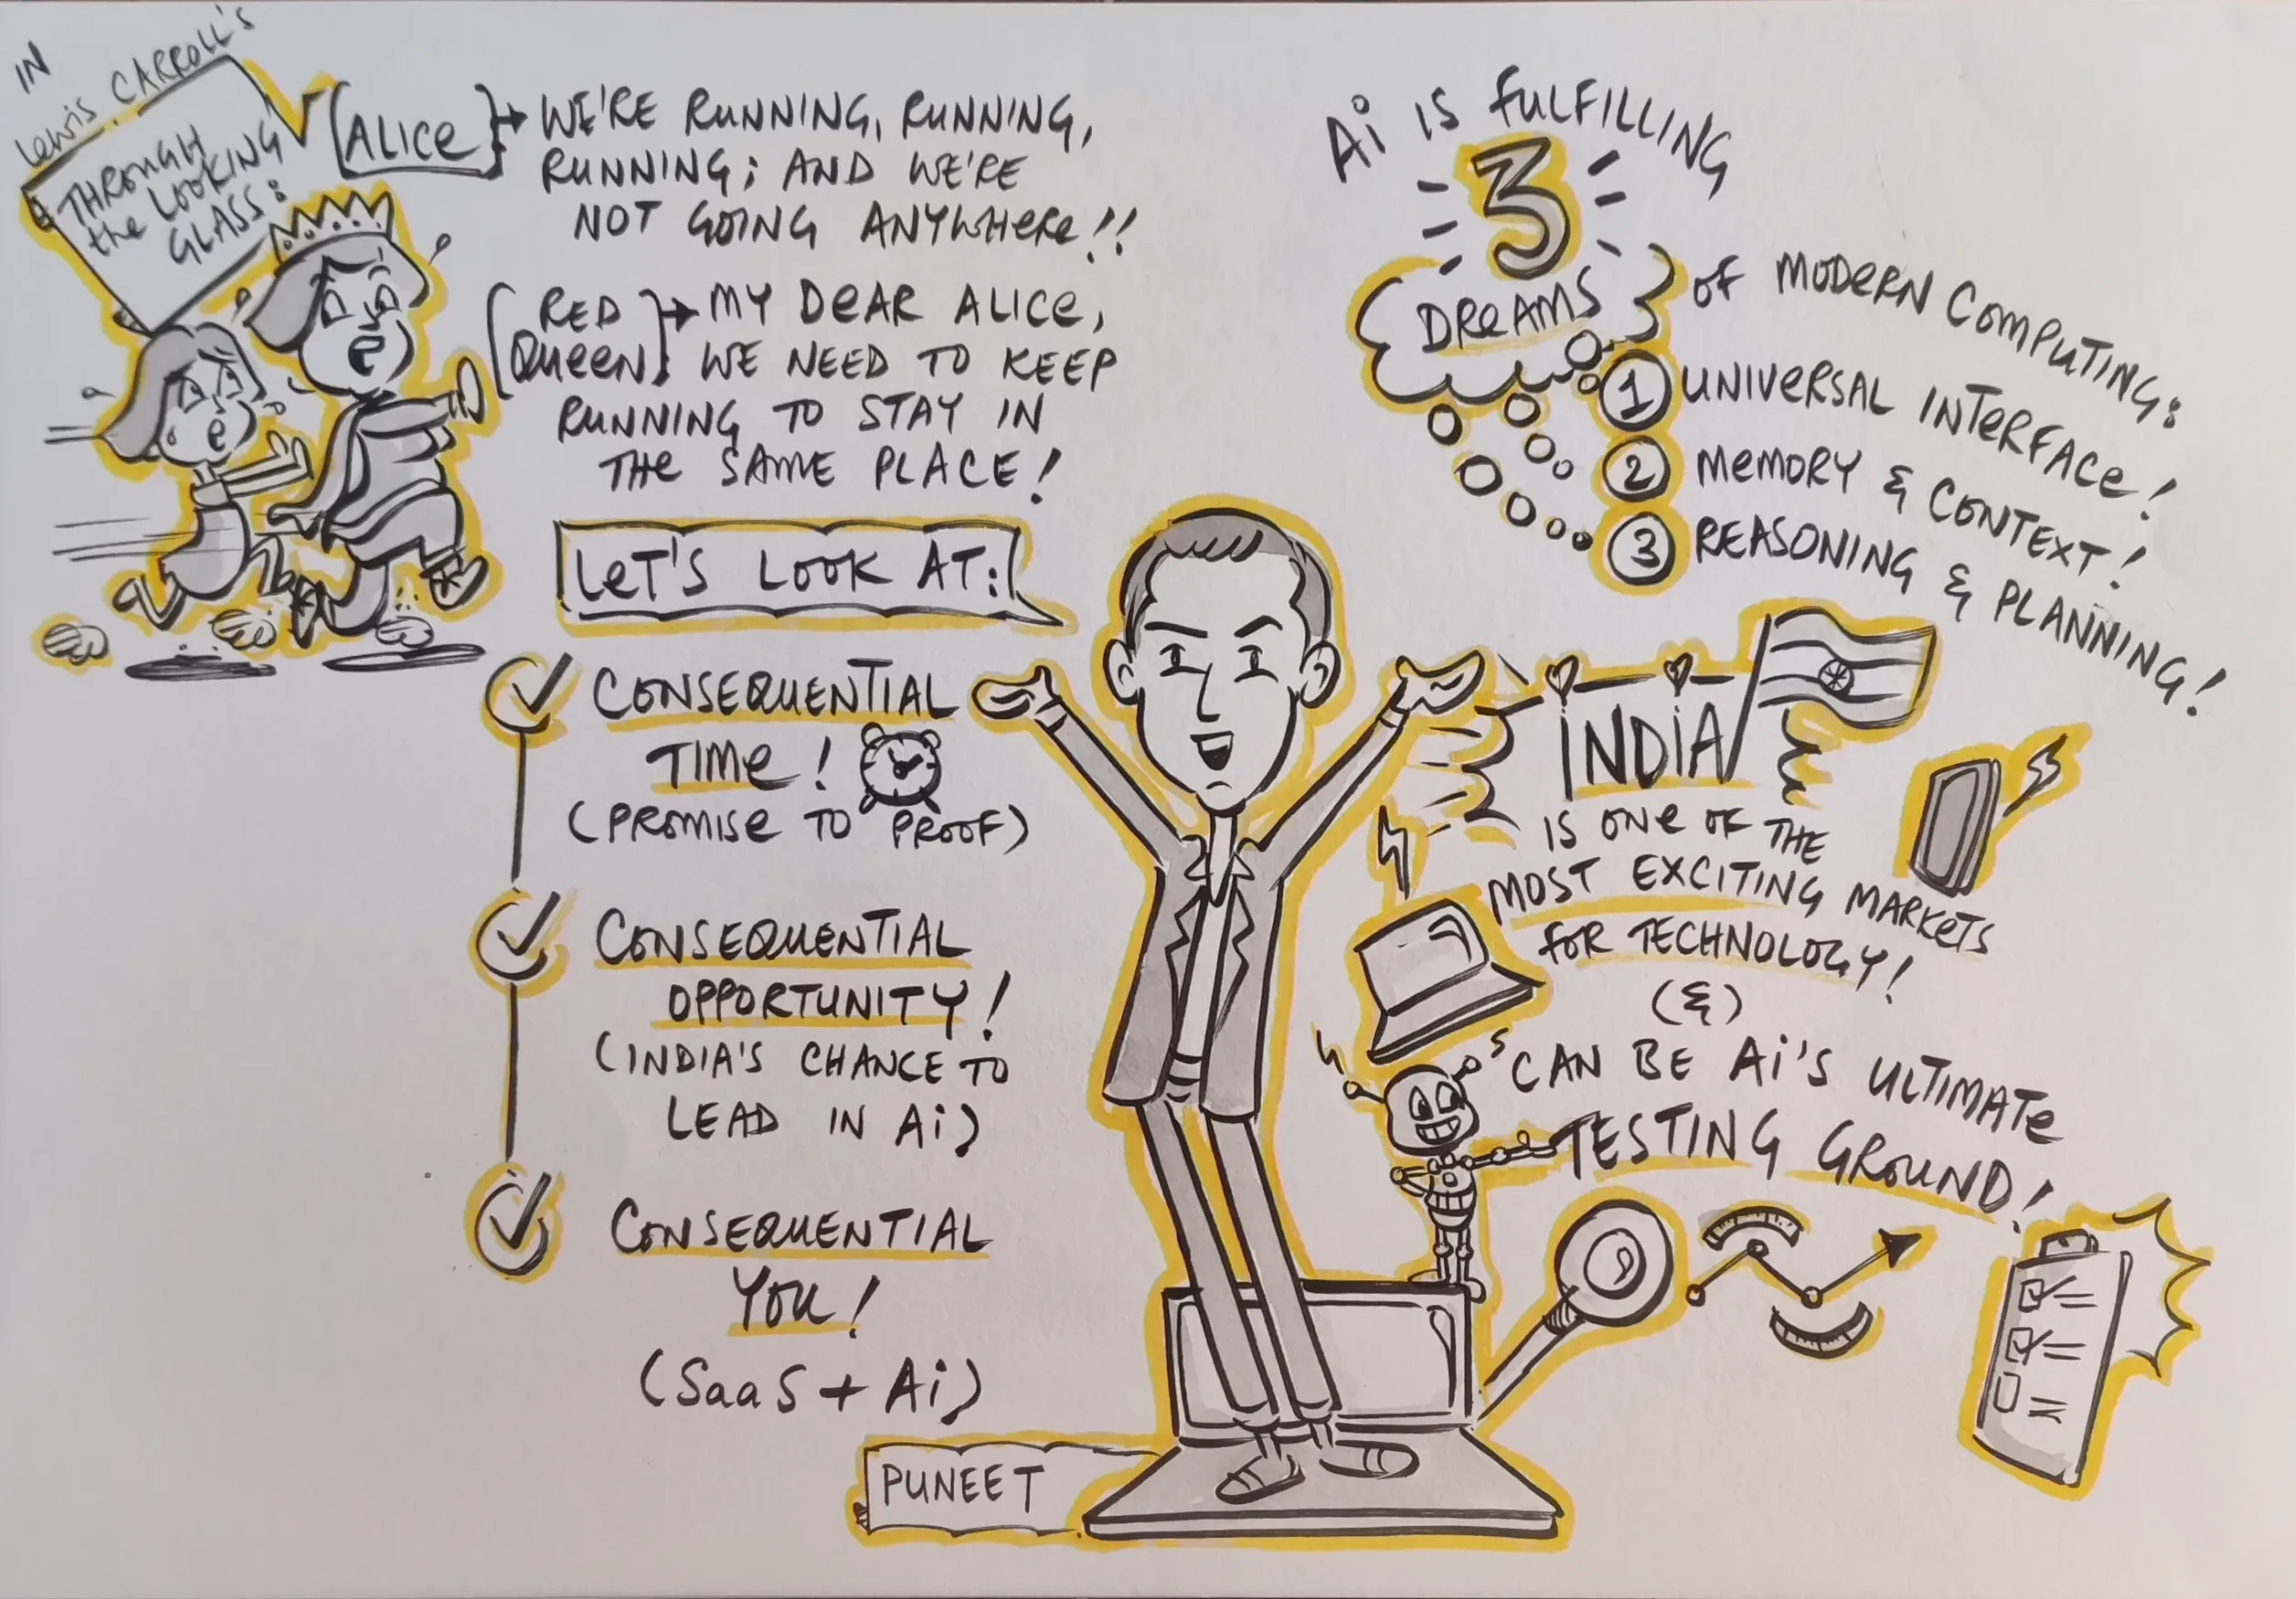 IN
Lewis CARROLL'S
THROUGH
the LOOKING
GLASS:
ALICE → WE'RE RUNNING, RUNNING,
RUNNING; AND WE'RE
NOT GOING ANYWHERE!!
RED QUEEN → MY DEAR ALICE,
WE NEED TO KEEP
RUNNING TO STAY IN
THE SAME PLACE!
LET'S LOOK AT:
CONSEQUENTIAL
TIME!
(PROMISE TO PROOF)
CONSEQUENTIAL
OPPORTUNITY!
(INDIA'S CHANCE TO
LEAD IN Ai)
CONSEQUENTIAL
YOU!
(SaaS + Ai)
PUNEET
Ai IS FULFILLING
3
DREAMS
OF MODERN COMPUTING:
1 UNIVERSAL INTERFACE!
2 MEMORY & CONTEXT!
3 REASONING & PLANNING!
INDIA
IS ONE OF THE
MOST EXCITING MARKETS
FOR TECHNOLOGY!
(&)
CAN BE Ai'S ULTIMATE
TESTING GROUND!